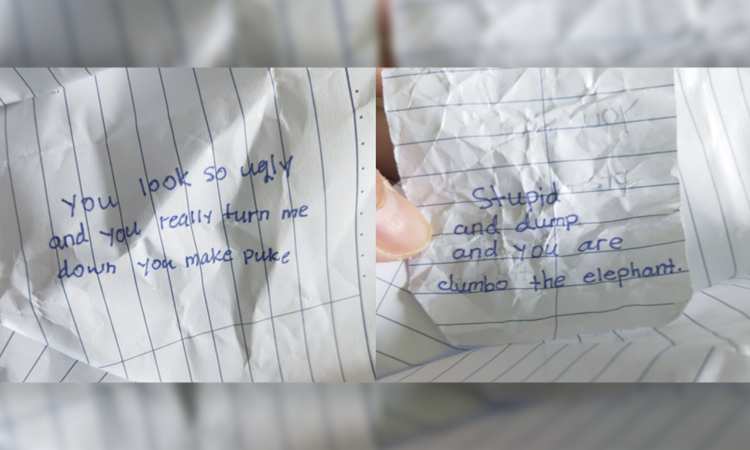 you look so ugly
and you really turn me
down you make puke
Stupid
and dump
and you are
dumbo the elephant.